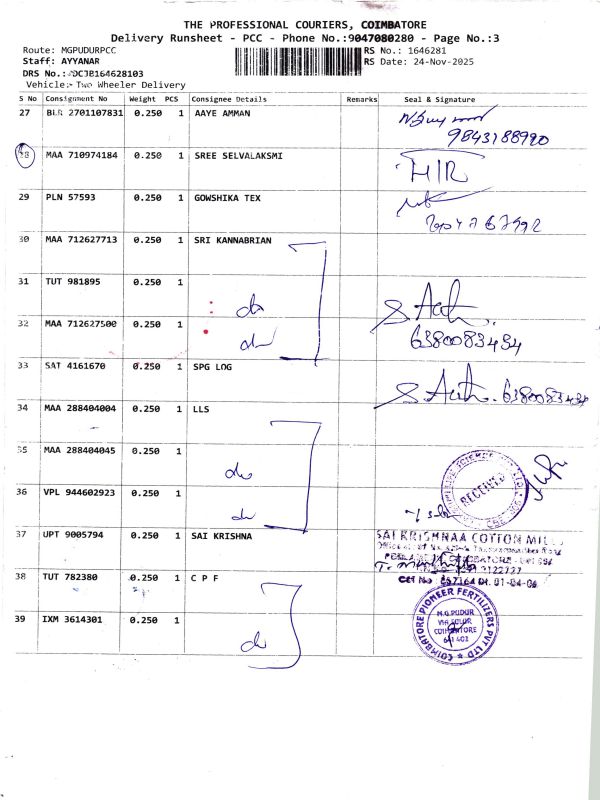 THE PROFESSIONAL COURIERS, COIMBATORE
Delivery Runsheet - PCC - Phone No.:9047080280 - Page No.:3
Route: MGPUDURPCC RS No.: 1646281
Staff: AYYANAR RS Date: 24-Nov-2025
DRS No.: DCJB164628103
Vehicle:- Two Wheeler Delivery
S No Consignment No Weight PCS Consignee Details Remarks Seal & Signature
27 BLR 2701107831 0.250 1 AAYE AMMAN
9843188990
28 MAA 710974184 0.250 1 SREE SELVALAKSMI H/R
29 PLN 57593 0.250 1 GOWSHIKA TEX
30 MAA 712627713 0.250 1 SRI KANNABRIAN
31 TUT 981895 0.250 1 do
32 MAA 712627500 0.250 1 do
6380083434
33 SAT 4161670 0.250 1 SPG LOG 6380083434
34 MAA 288404004 0.250 1 LLS
35 MAA 288404045 0.250 1 do
36 VPL 944602923 0.250 1 do
RECEIVED
37 UPT 9005794 0.250 1 SAI KRISHNA
SAI KRISHNAA COTTON MILLS
38 TUT 782380 0.250 1 C P F
39 IXM 3614301 0.250 1 do
COIMBATORE PIONEER FERTILIZERS PVT LTD
M.G.PUDUR
VIA SULUR
COIMBATORE
641 402